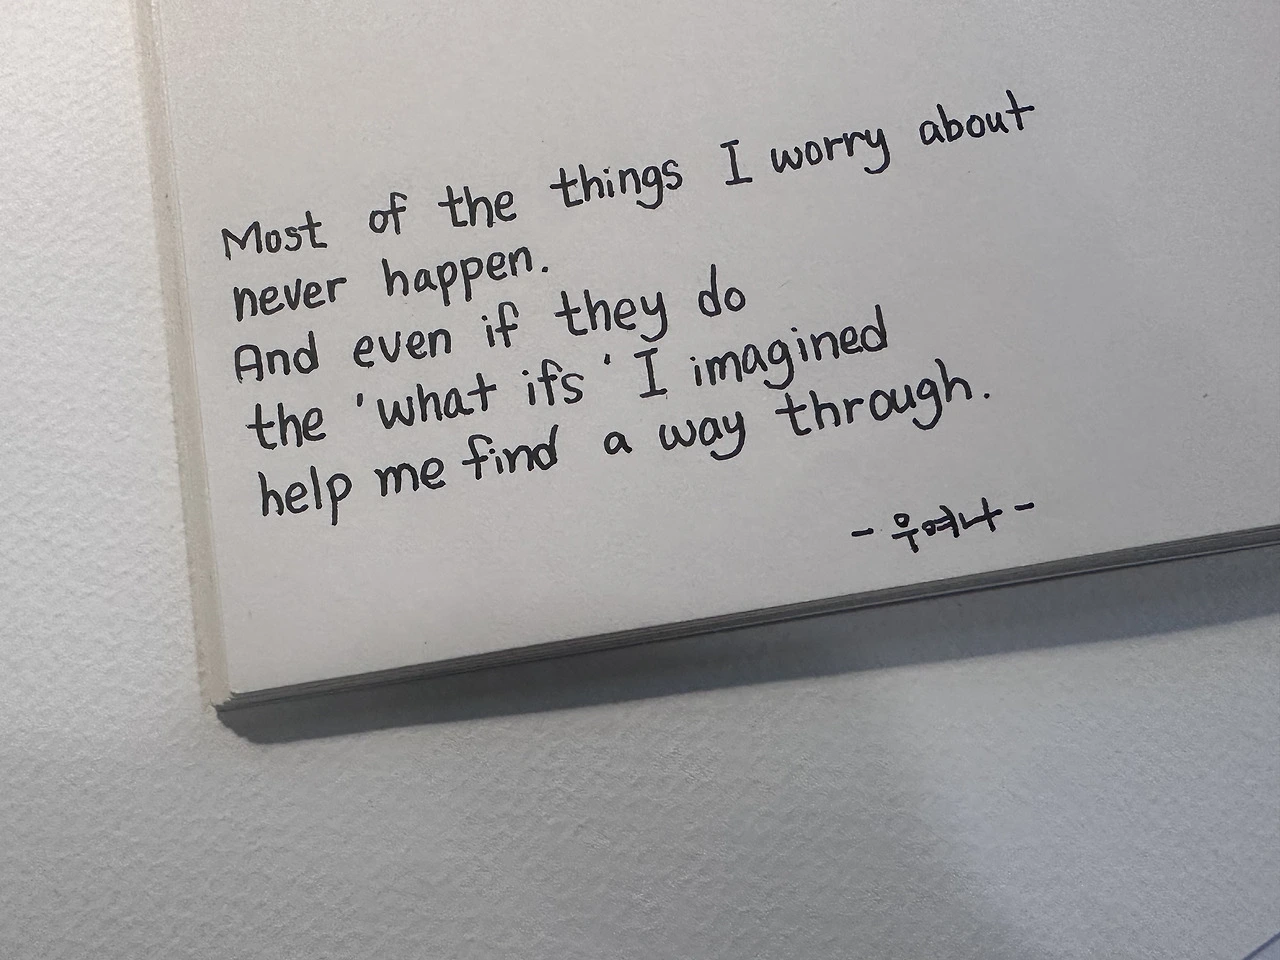 Most of the things I worry about
never happen.
And even if they do
the 'what ifs' I imagined
help me find a way through.
- 우여나 -